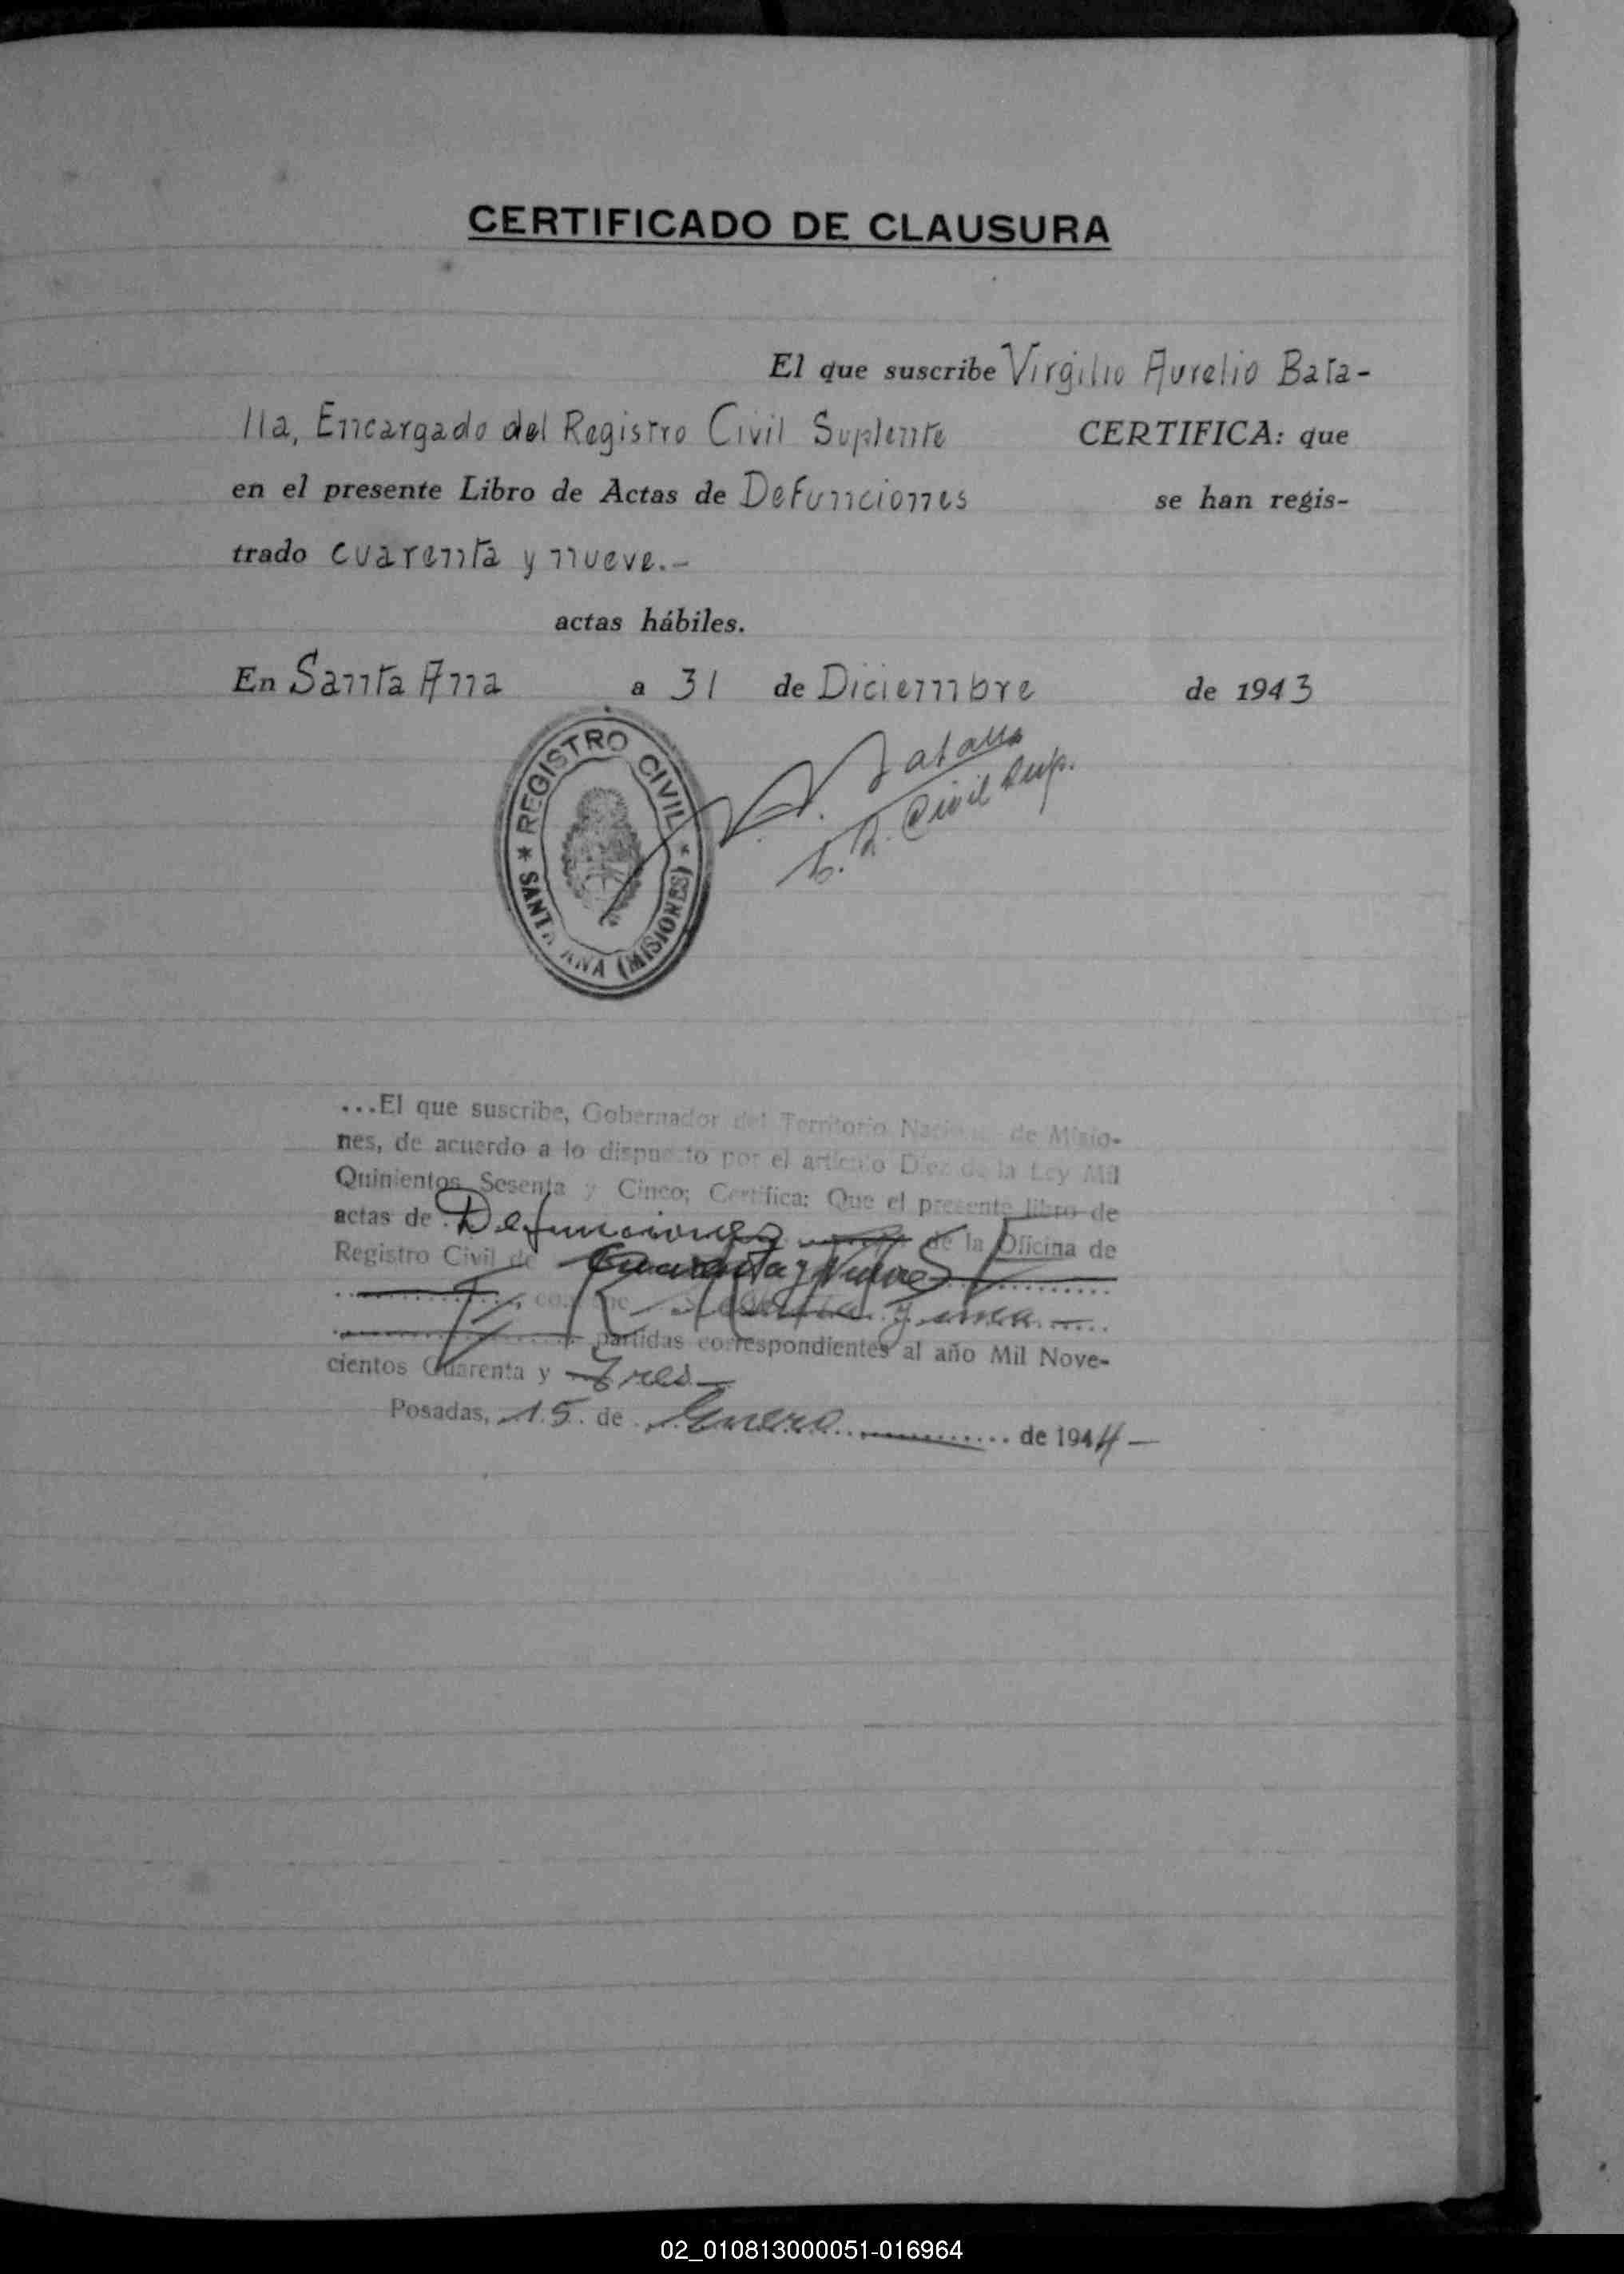 CERTIFICADO DE CLAUSURA
El que suscribe Virgilio Aurelio Bata-
lla, Encargado del Registro Civil Suplente CERTIFICA: que
en el presente Libro de Actas de Defunciones se han regis-
trado cuarenta y nueve.-
actas hábiles.
En Santa Ana a 31 de Diciembre de 1943
REGISTRO CIVIL
SANTA ANA (MISIONES)
Batalla
Civil Sup.
...El que suscribe, Gobernador del Territorio Nacional de Misio-
nes, de acuerdo a lo dispuesto por el artículo Diez de la Ley Mil
Quinientos Sesenta y Cinco; Certifica: Que el presente libro de
actas de Defunciones de la Oficina de
Registro Civil de Cuarenta y Nueve
y una
partidas correspondientes al año Mil Nove-
cientos Cuarenta y Tres
Posadas, 15 de Enero de 1944
02_010813000051-016964